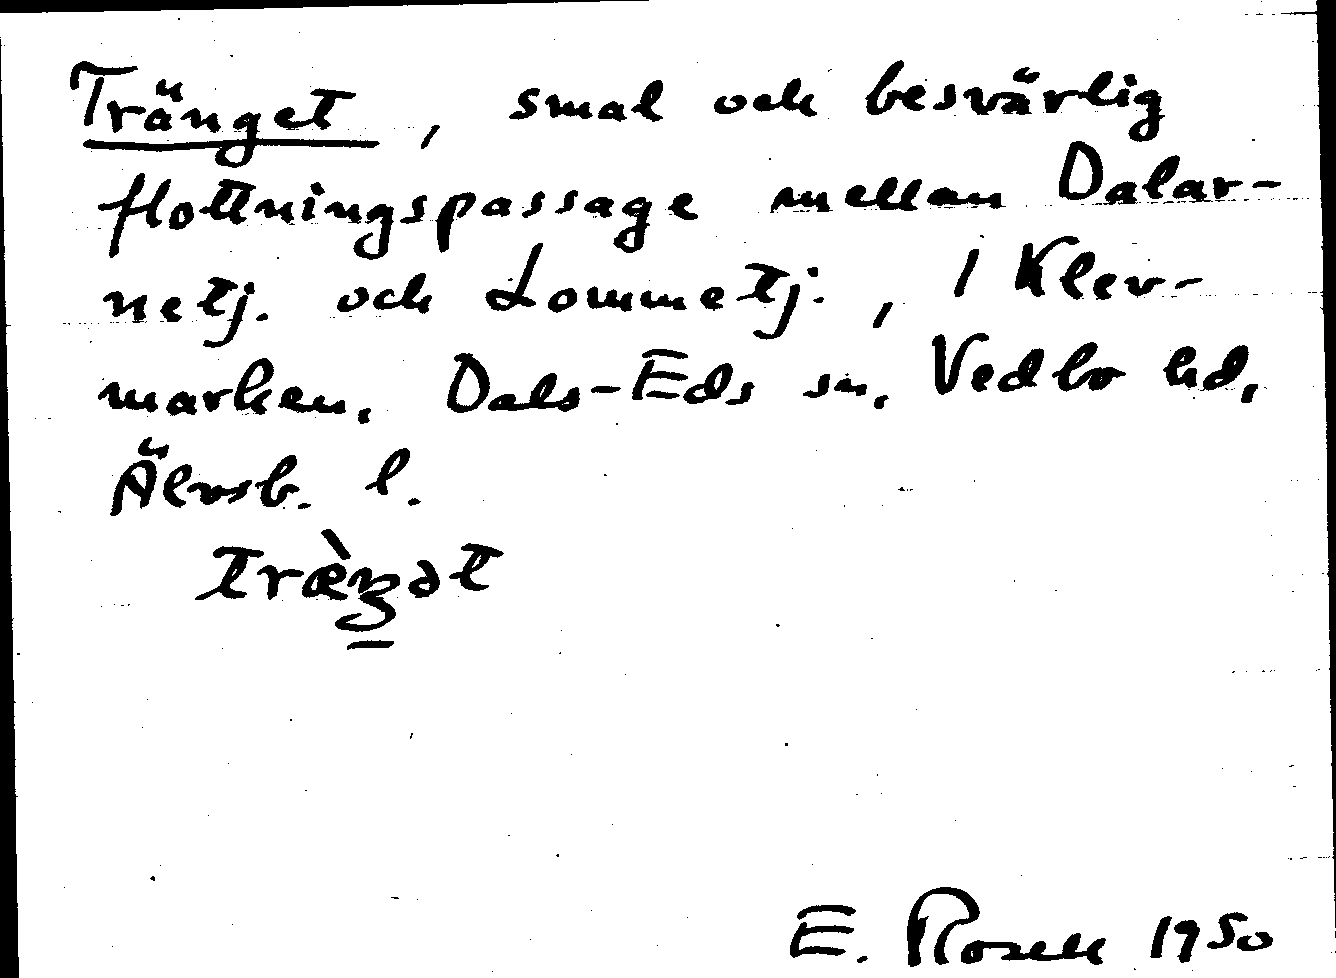 Tränget, smal och besvärlig
flottningspassage mellan Dalar-
netj. och Lommetj., 1 Klev-
marken. Dals-Eds sn. Vedbo hd.
Älvsb. l.
træ̀ŋət
E. Rosell 1950